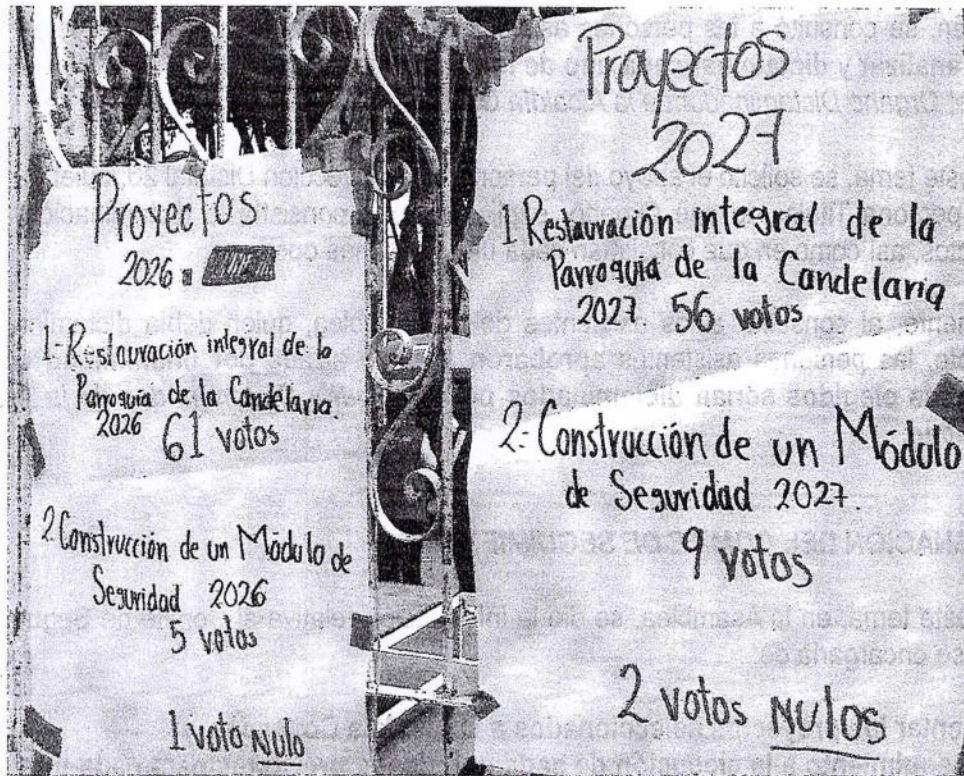 Proyectos
2026
1.- Restauración integral de la
Parroquia de la Candelaria.
2026 61 votos
2. Construcción de un Módulo de
Seguridad 2026
5 votos
1 voto NULO
Proyectos
2027
1 Restauración integral de la
Parroquia de la Candelaria
2027 56 votos
2.- Construcción de un Módulo
de Seguridad 2027.
9 votos
2 votos NULOS